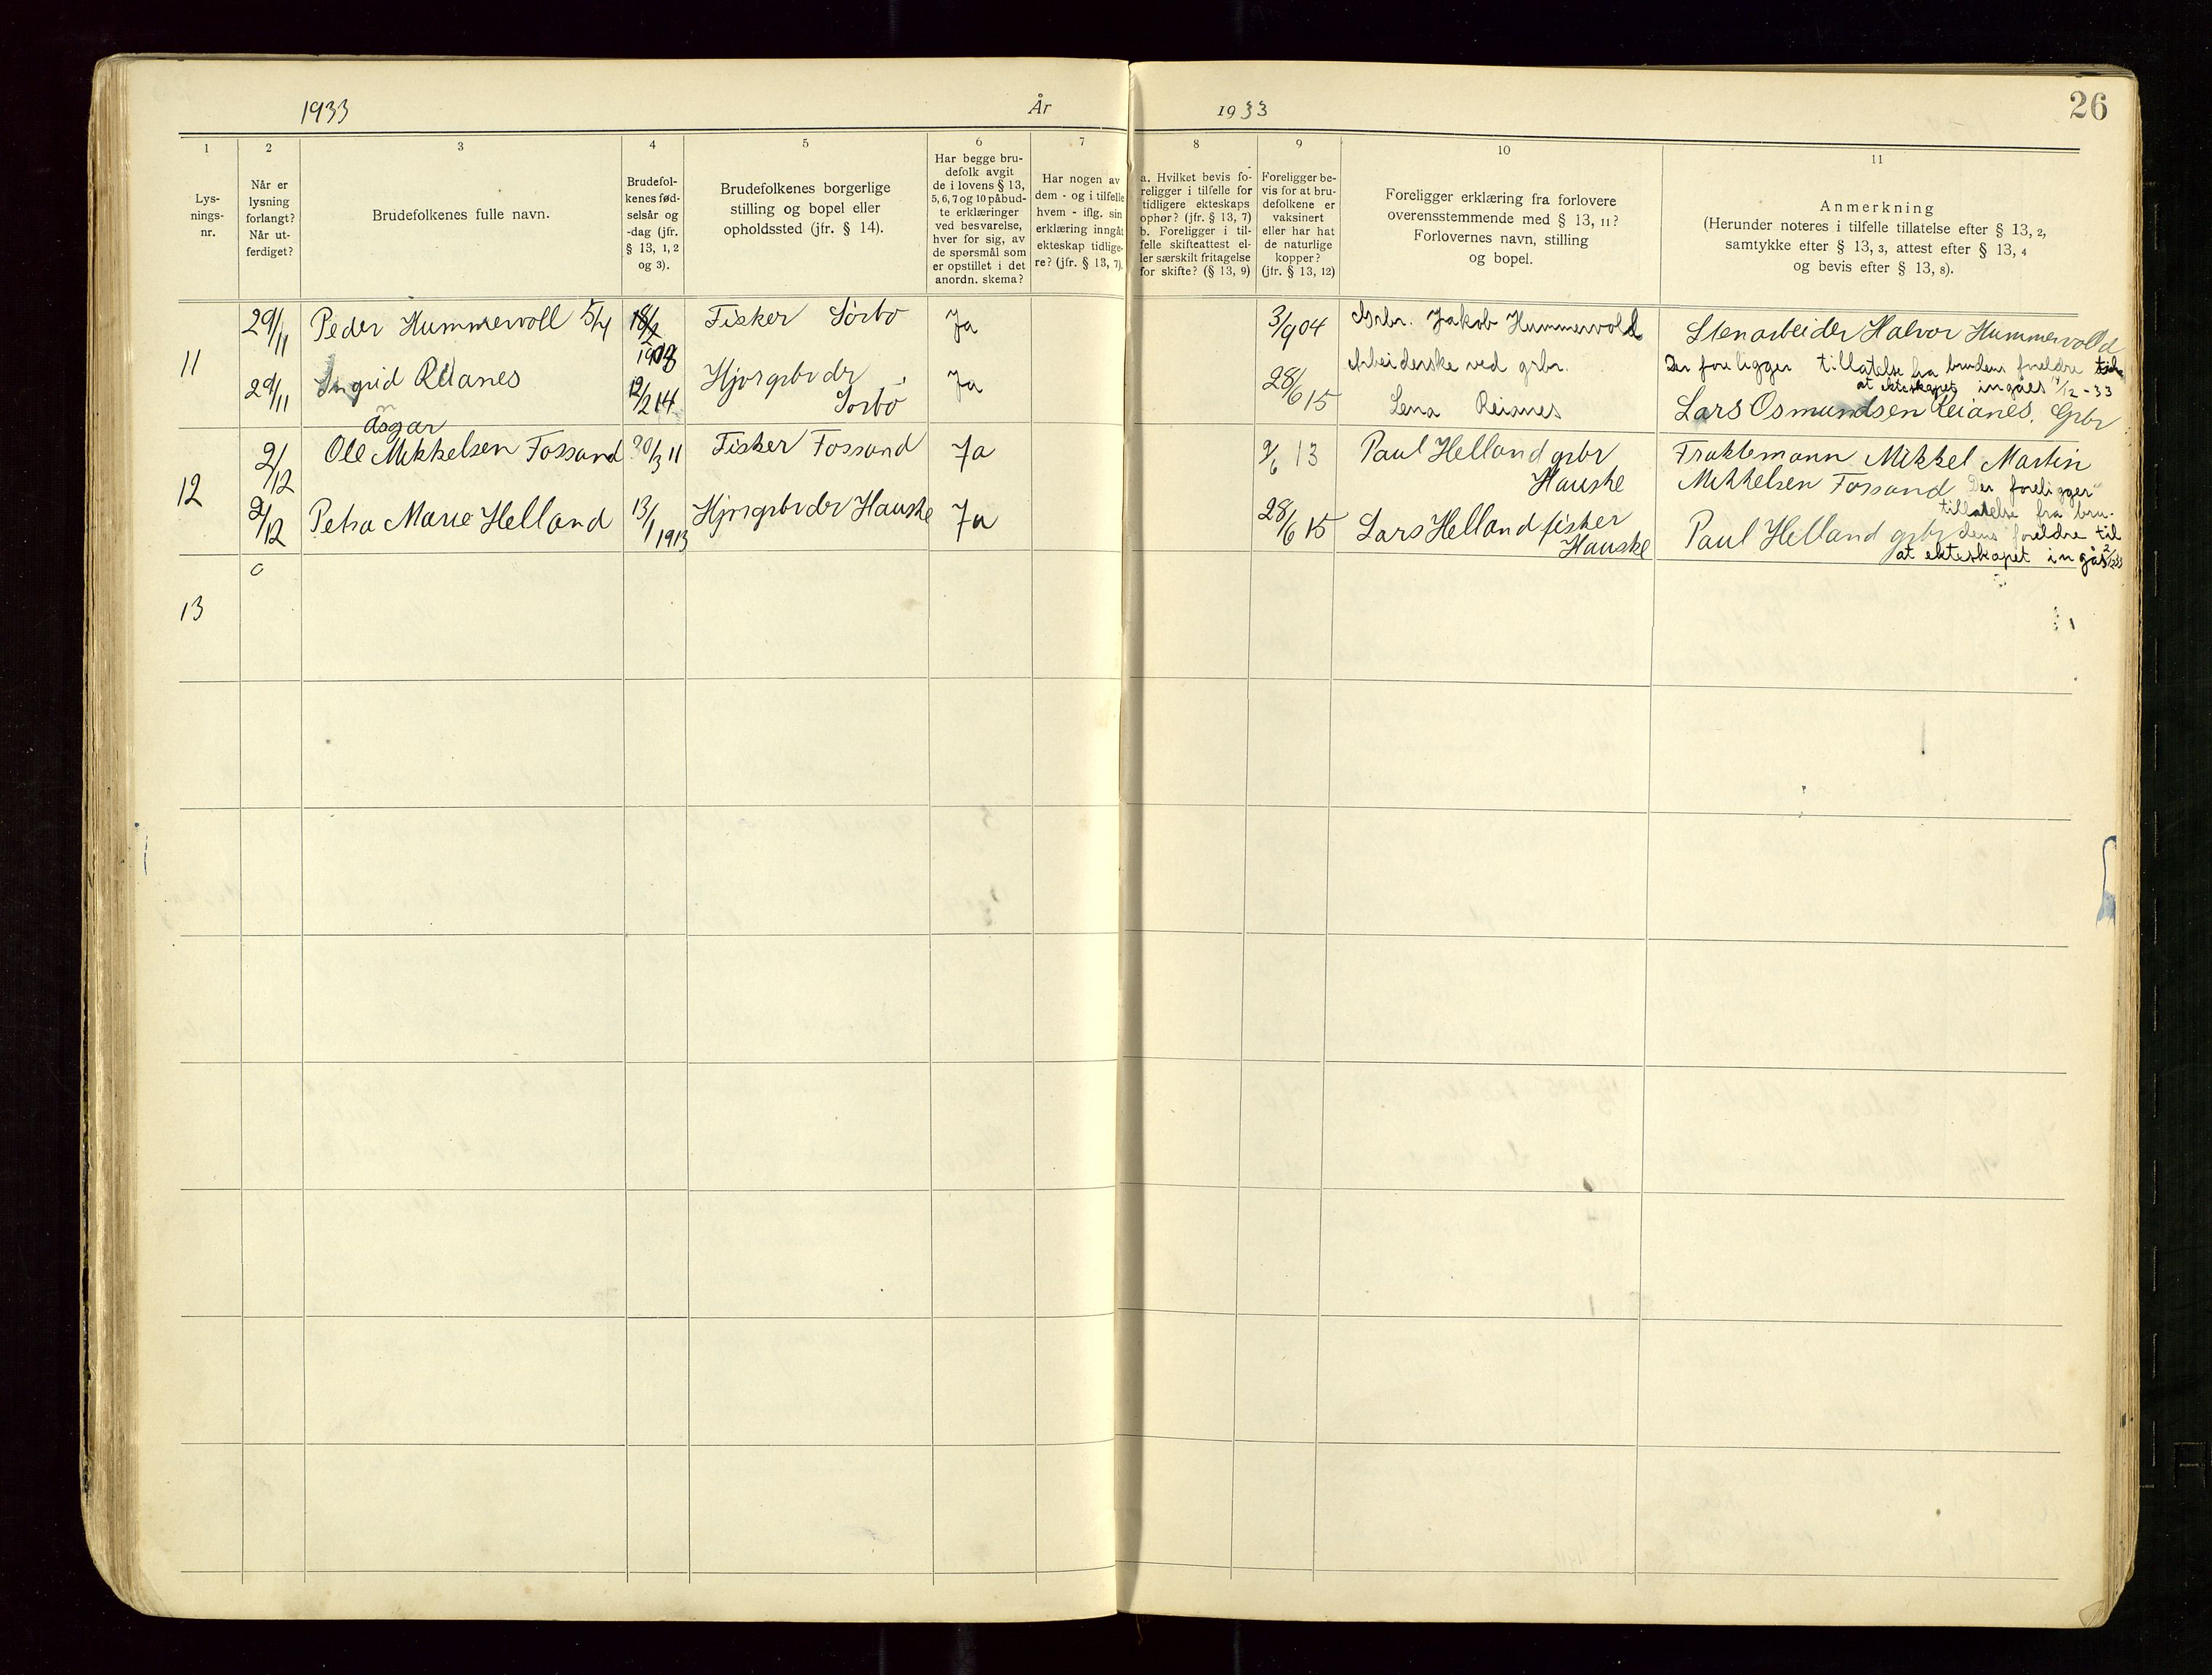 1933
År
1933
26
1
Lys-
nings-
nr.
2
Når er
lysning
forlangt?
Når ut-
ferdiget?
3
Brudefolkenes fulle navn.
4
Brudefol-
kenes fød-
selsår og
-dag (jfr.
§ 13, 1, 2
og 3).
5
Brudefolkenes borgerlige
stilling og bopel eller
opholdssted (jfr. § 14).
6
Har begge bru-
defolk avgit
de i lovens § 13,
5, 6, 7 og 10 påbud-
te erklæringer
ved besvarelse,
hver for sig, av
de spørsmål som
er opstillet i det
anordn. skema?
7
Har nogen av
dem - og i tilfelle
hvem - iflg. sin
erklæring inngåt
ekteskap tidlige-
re? (jfr. § 13, 7).
8
a. Hvilket bevis fo-
religger i tilfelle for
tidligere ekteskaps
ophør? (jfr. § 13, 7)
b. Foreligger i til-
felle skifteattest el-
ler særskilt fritagelse
for skifte? (§ 13, 9)
9
Foreligger be-
vis for at bru-
defolkene er
vaksinert
eller har hat
de naturlige
kopper?
(jfr. § 13, 12)
10
Foreligger erklæring fra forlovere
overensstemmende med § 13, 11?
Forlovernes navn, stilling
og bopel.
11
Anmerkning
(Herunder noteres i tilfelle tillatelse efter § 13, 2,
samtykke efter § 13, 3, attest efter § 13, 4
og bevis efter § 13, 8).
11
29/11 Peder Hummervoll 5/4 18/2 1908 Fisker Sörbö Ja 3/9 04 Grbr. Jakob Hummervold Stenarbeider Halvor Hummervold
Arbeiderske ved grbr. Der foreligger tillatelse fra brudens foreldre til
at ekteskapet ingåes /12-33
29/11 Ingrid Reianes 12/2 14 Hjvrgrbr dr Sorbö Ja 28/6 15 Lena Reianes Lars Osmundsen Reianes. Grbr
12
Asgar
2/12 Ole Mikkelsen Fossand 30/3 11 Fisker Fossand Ja 9/6 13 Paul Helland grbr Fraktemann Mikkel Martin
Hauske Mikkelsen Fossand Der foreligger
tillatelse fra bru-
2/12 Petra Marie Helland 13/1 1913 Hjvrgrbr dr Hauske Ja 28/6 15 Lars Helland fisker Paul Helland grbr dens foreldre til
Hauske at ekteskapet ingås
13